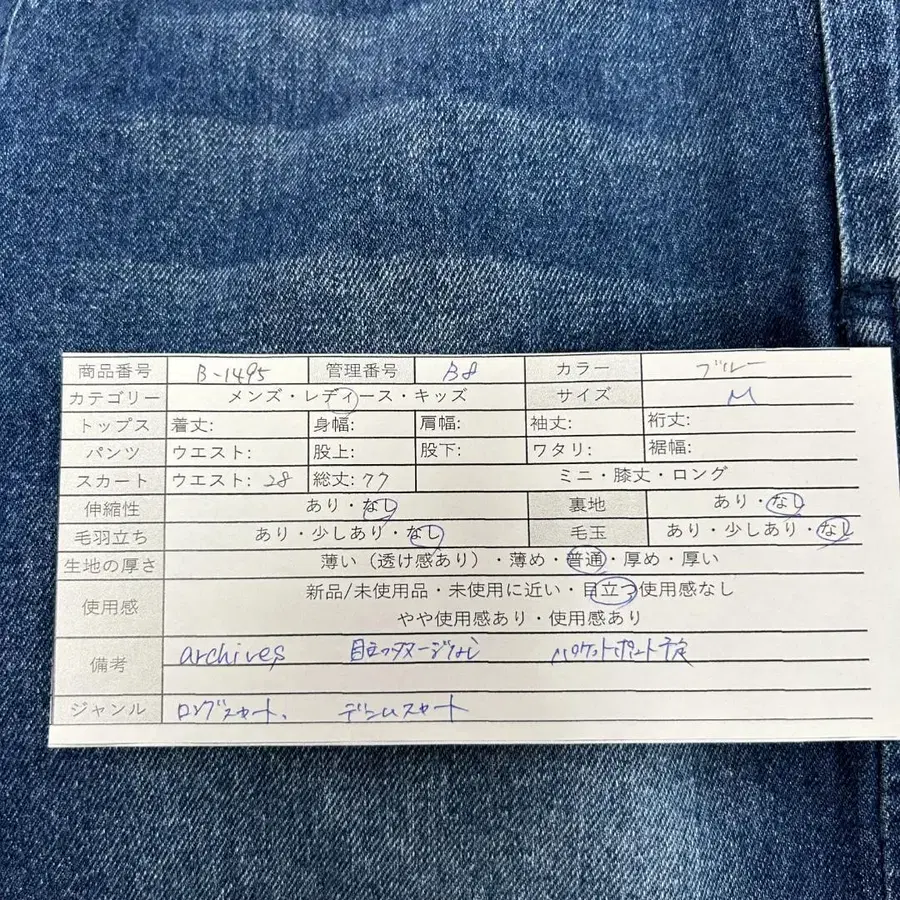 商品番号 B-1495 管理番号 B8 カラー ブルー
カテゴリー メンズ・レディース・キッズ サイズ M
トップス 着丈: 身幅: 肩幅: 袖丈: 裄丈:
パンツ ウエスト: 股上: 股下: ワタリ: 裾幅:
スカート ウエスト: 28 総丈: 77 ミニ・膝丈・ロング
伸縮性 あり・なし 裏地 あり・なし
毛羽立ち あり・少しあり・なし 毛玉 あり・少しあり・なし
生地の厚さ 薄い（透け感あり）・薄め・普通・厚め・厚い
使用感 新品/未使用品・未使用に近い・目立つ使用感なし
やや使用感あり・使用感あり
備考 archives 目立つダメージなし
ジャンル ロングスカート、 デニムスカート